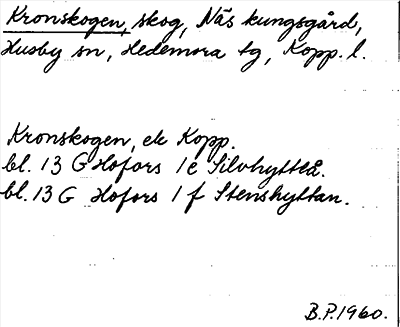 Kronskogen, skog, Näs kungsgård,
Husby sn, Hedemora tg, Kopp. l.
Kronskogen, ek Kopp.
bl. 13 G Hofors 1e Silvhytteå.
bl. 13 G Hofors 1 f Stenshyttan.
B.P. 1960.